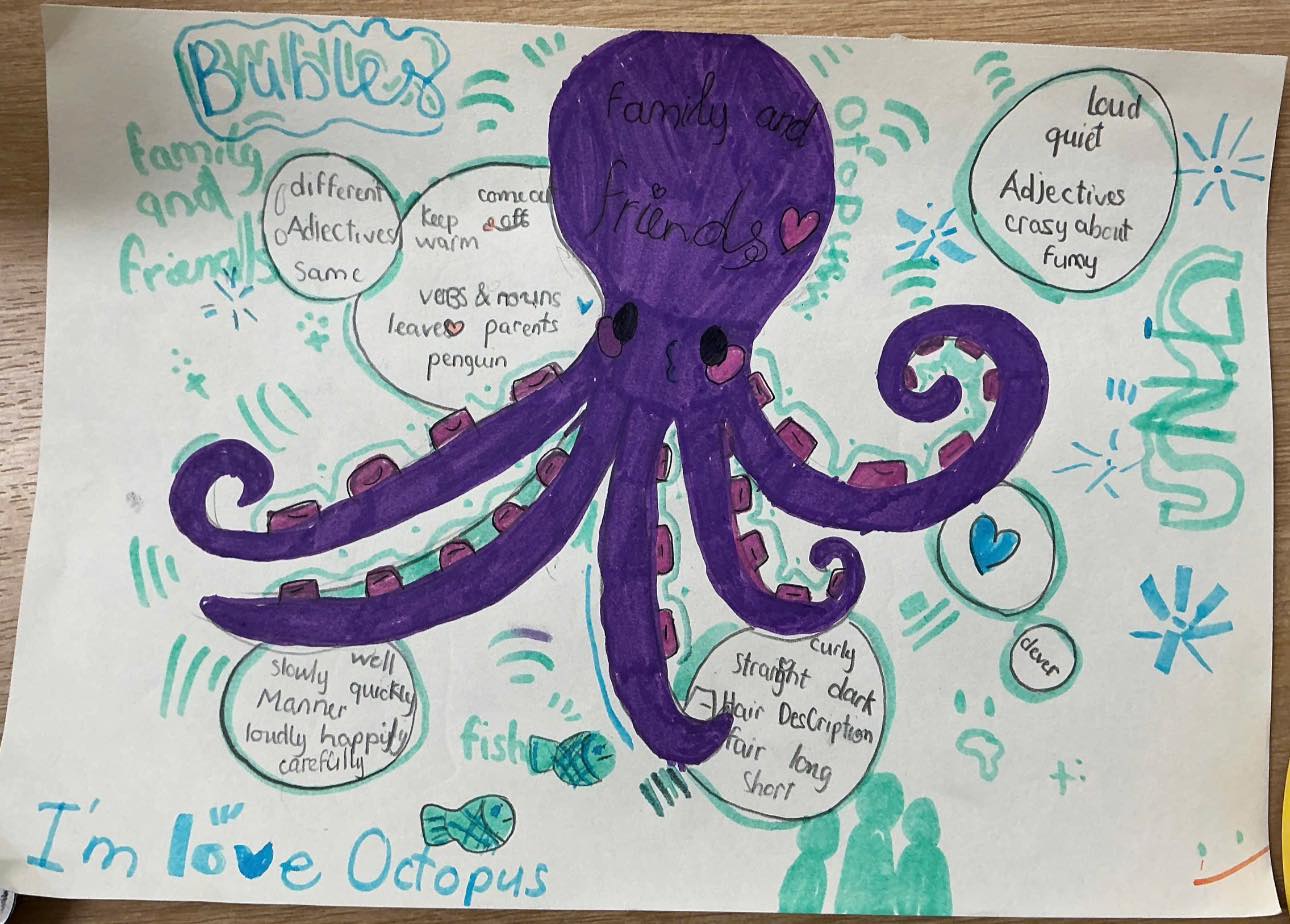 Bubles
family
and
friends
family and
friends
different
Adjectives
same
come
keep off
warm
verbs & nouns
leaves parents
penguin
loud
quiet
Adjectives
crasy about
funny
clever
slowly well
Manner quickly
loudly happily
carefully
curly
straight dark
Hair Description
fair long
short
fish
I'm love Octopus